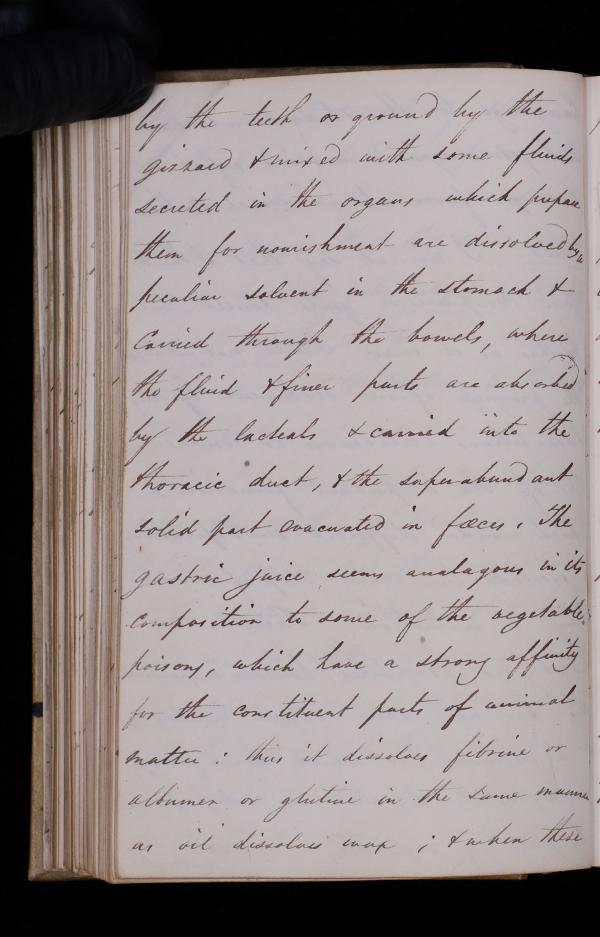 by the teeth or ground by the
gizzard & mixed with some fluids
secreted in the organs which prepare
them for nourishment are dissolved by a
peculiar solvent in the stomach &
Carried through the bowels, where
the fluid & finer parts are absorbed
by the lacteals & carried into the
thoracic duct, & the superabundant
solid part evacuated in fœces. The
gastric juice seems analagous in its
composition to some of the vegetable
poisons, which have a strong affinity
for the constituent parts of animal
matter: thus it dissolves fibrine or
albumen or glutine in the same manner
as oil dissolves wax; & when these